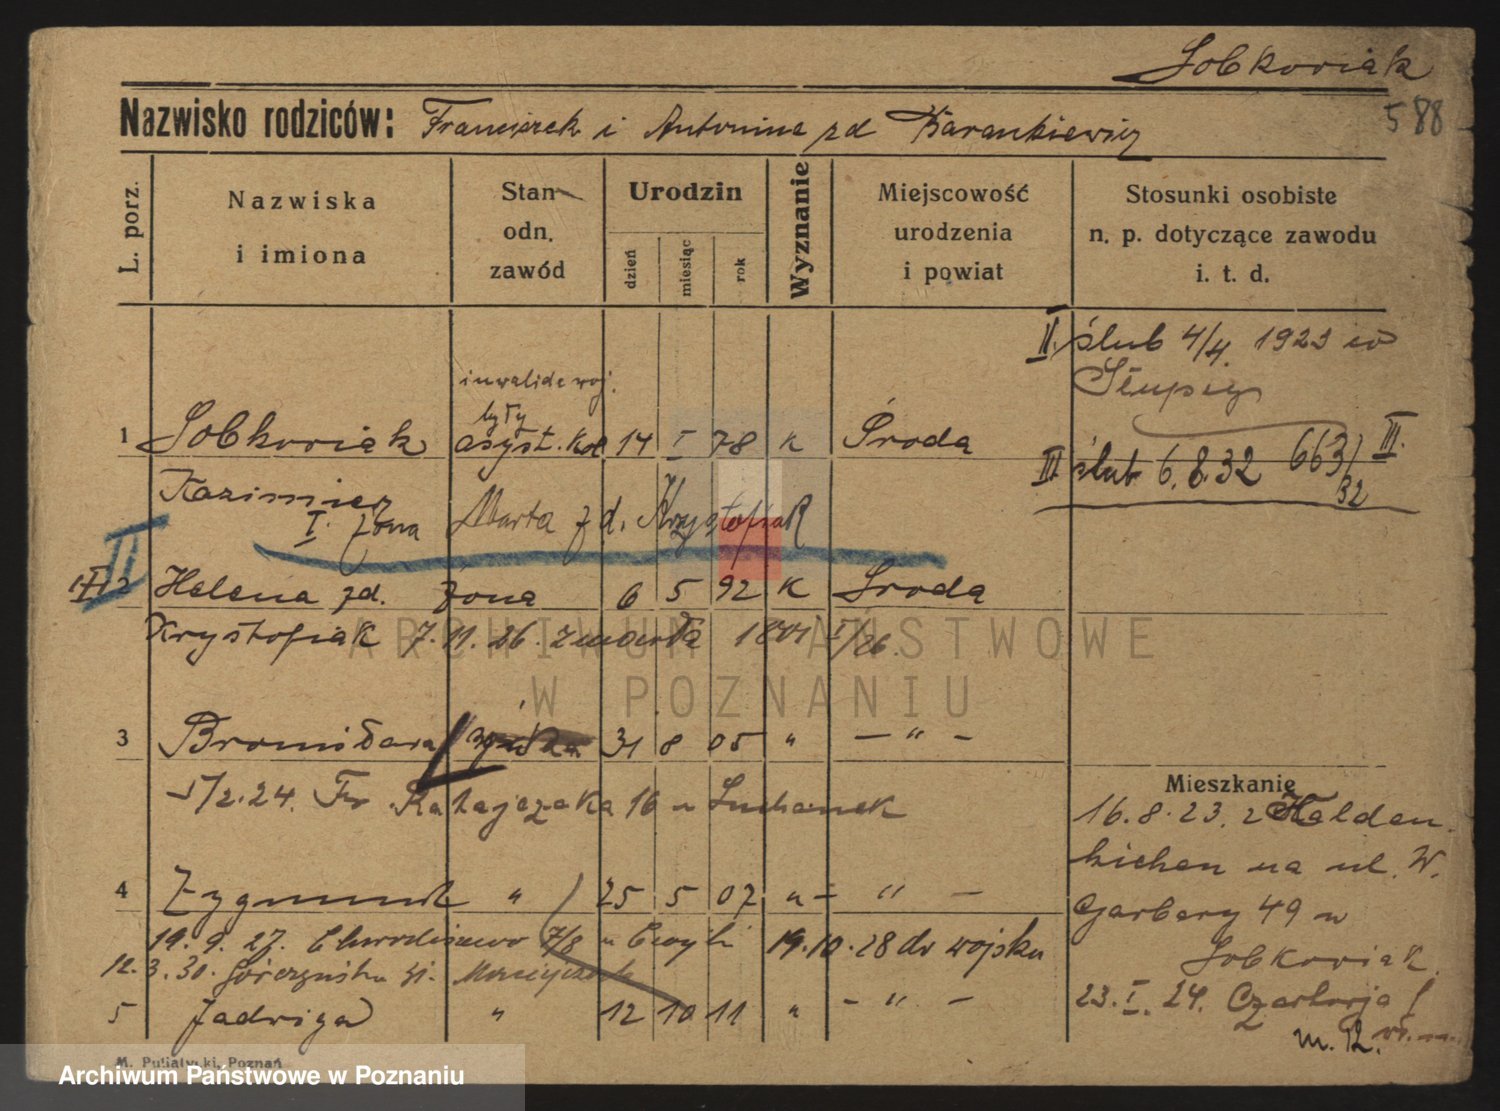 Sobkowiak
588
Nazwisko rodziców: Franciszek i Antonina zd Barankiewicz
L. porz.
Nazwiska
i imiona
Stan
odn.
zawód
Urodzin
dzień
miesiąc
rok
Wyznanie
Miejscowość
urodzenia
i powiat
Stosunki osobiste
n. p. dotyczące zawodu
i. t. d.
II. ślub 4/4. 1923 w
Słupcy
inwalida woj.
były
1 Sobkowiak asyst. kol 14 I 78 k Środa
III ślub 6.8.32 663/32 III.
Kazimierz
I. żona Marta zd. Krzystofiak
II
2 Helena zd. żona 6 5 92 k Środa
Krystofiak 7.11.26. zmarła 1801 I/26.
3 Bronisława 31 8 05 " — " —
5/2.24. Fr. Ratajczaka 16 u
4 Zygmunt " 25 5 07 " — " —
19.9.27. 7/8 u 19.10.28 do wojska
12.3.30. Górczyńska
5 Jadwiga " 12 10 11 " — " —
Mieszkanie
16.8.23. z Gelsen
kirchen na ul. W.
Garbary 49 u
Sobkowiak
23.I.24. Czartorja
m. 12.
M. Putiatycki, Poznań
ARCHIWUM PAŃSTWOWE
W POZNANIU
Archiwum Państwowe w Poznaniu